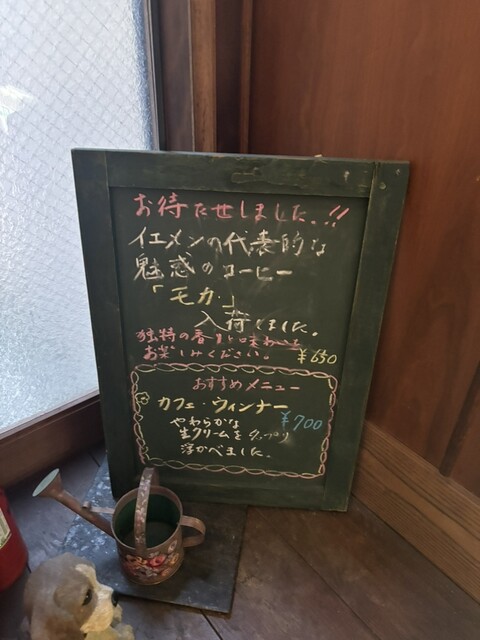 お待たせしました。!!
イエメンの代表的な
魅惑のコーヒー
「モカ」
入荷しました。
独特の香りと味わいを
お楽しみください。 ¥650
おすすめメニュー
カフェ・ウィンナー
¥700
やわらかな
生クリームをタップリ
浮かべました。